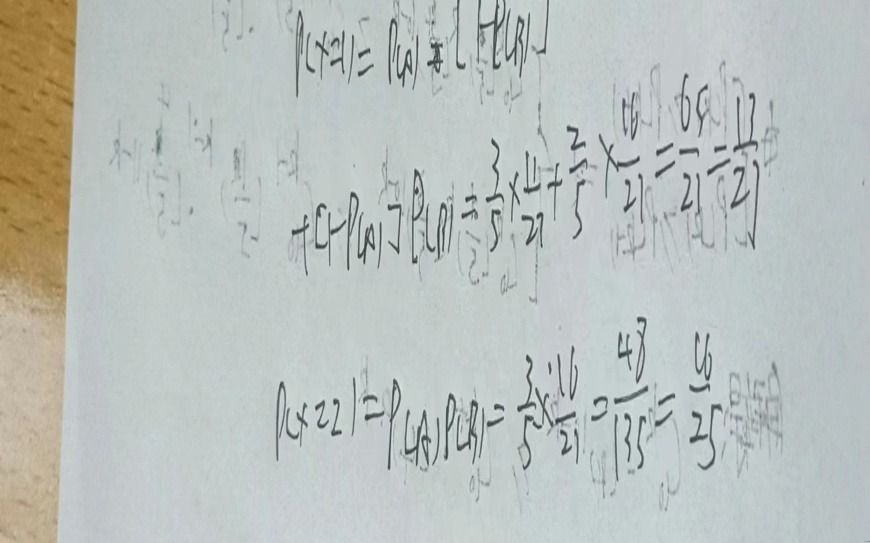 P(X=1)=P(A)·[1-P(B)]
+[1-P(A)]P(B)=3/5×11/27+2/5×16/27=65/21=13/27
P(X=2)=P(A)P(B)=3/5×16/27=48/135=16/25